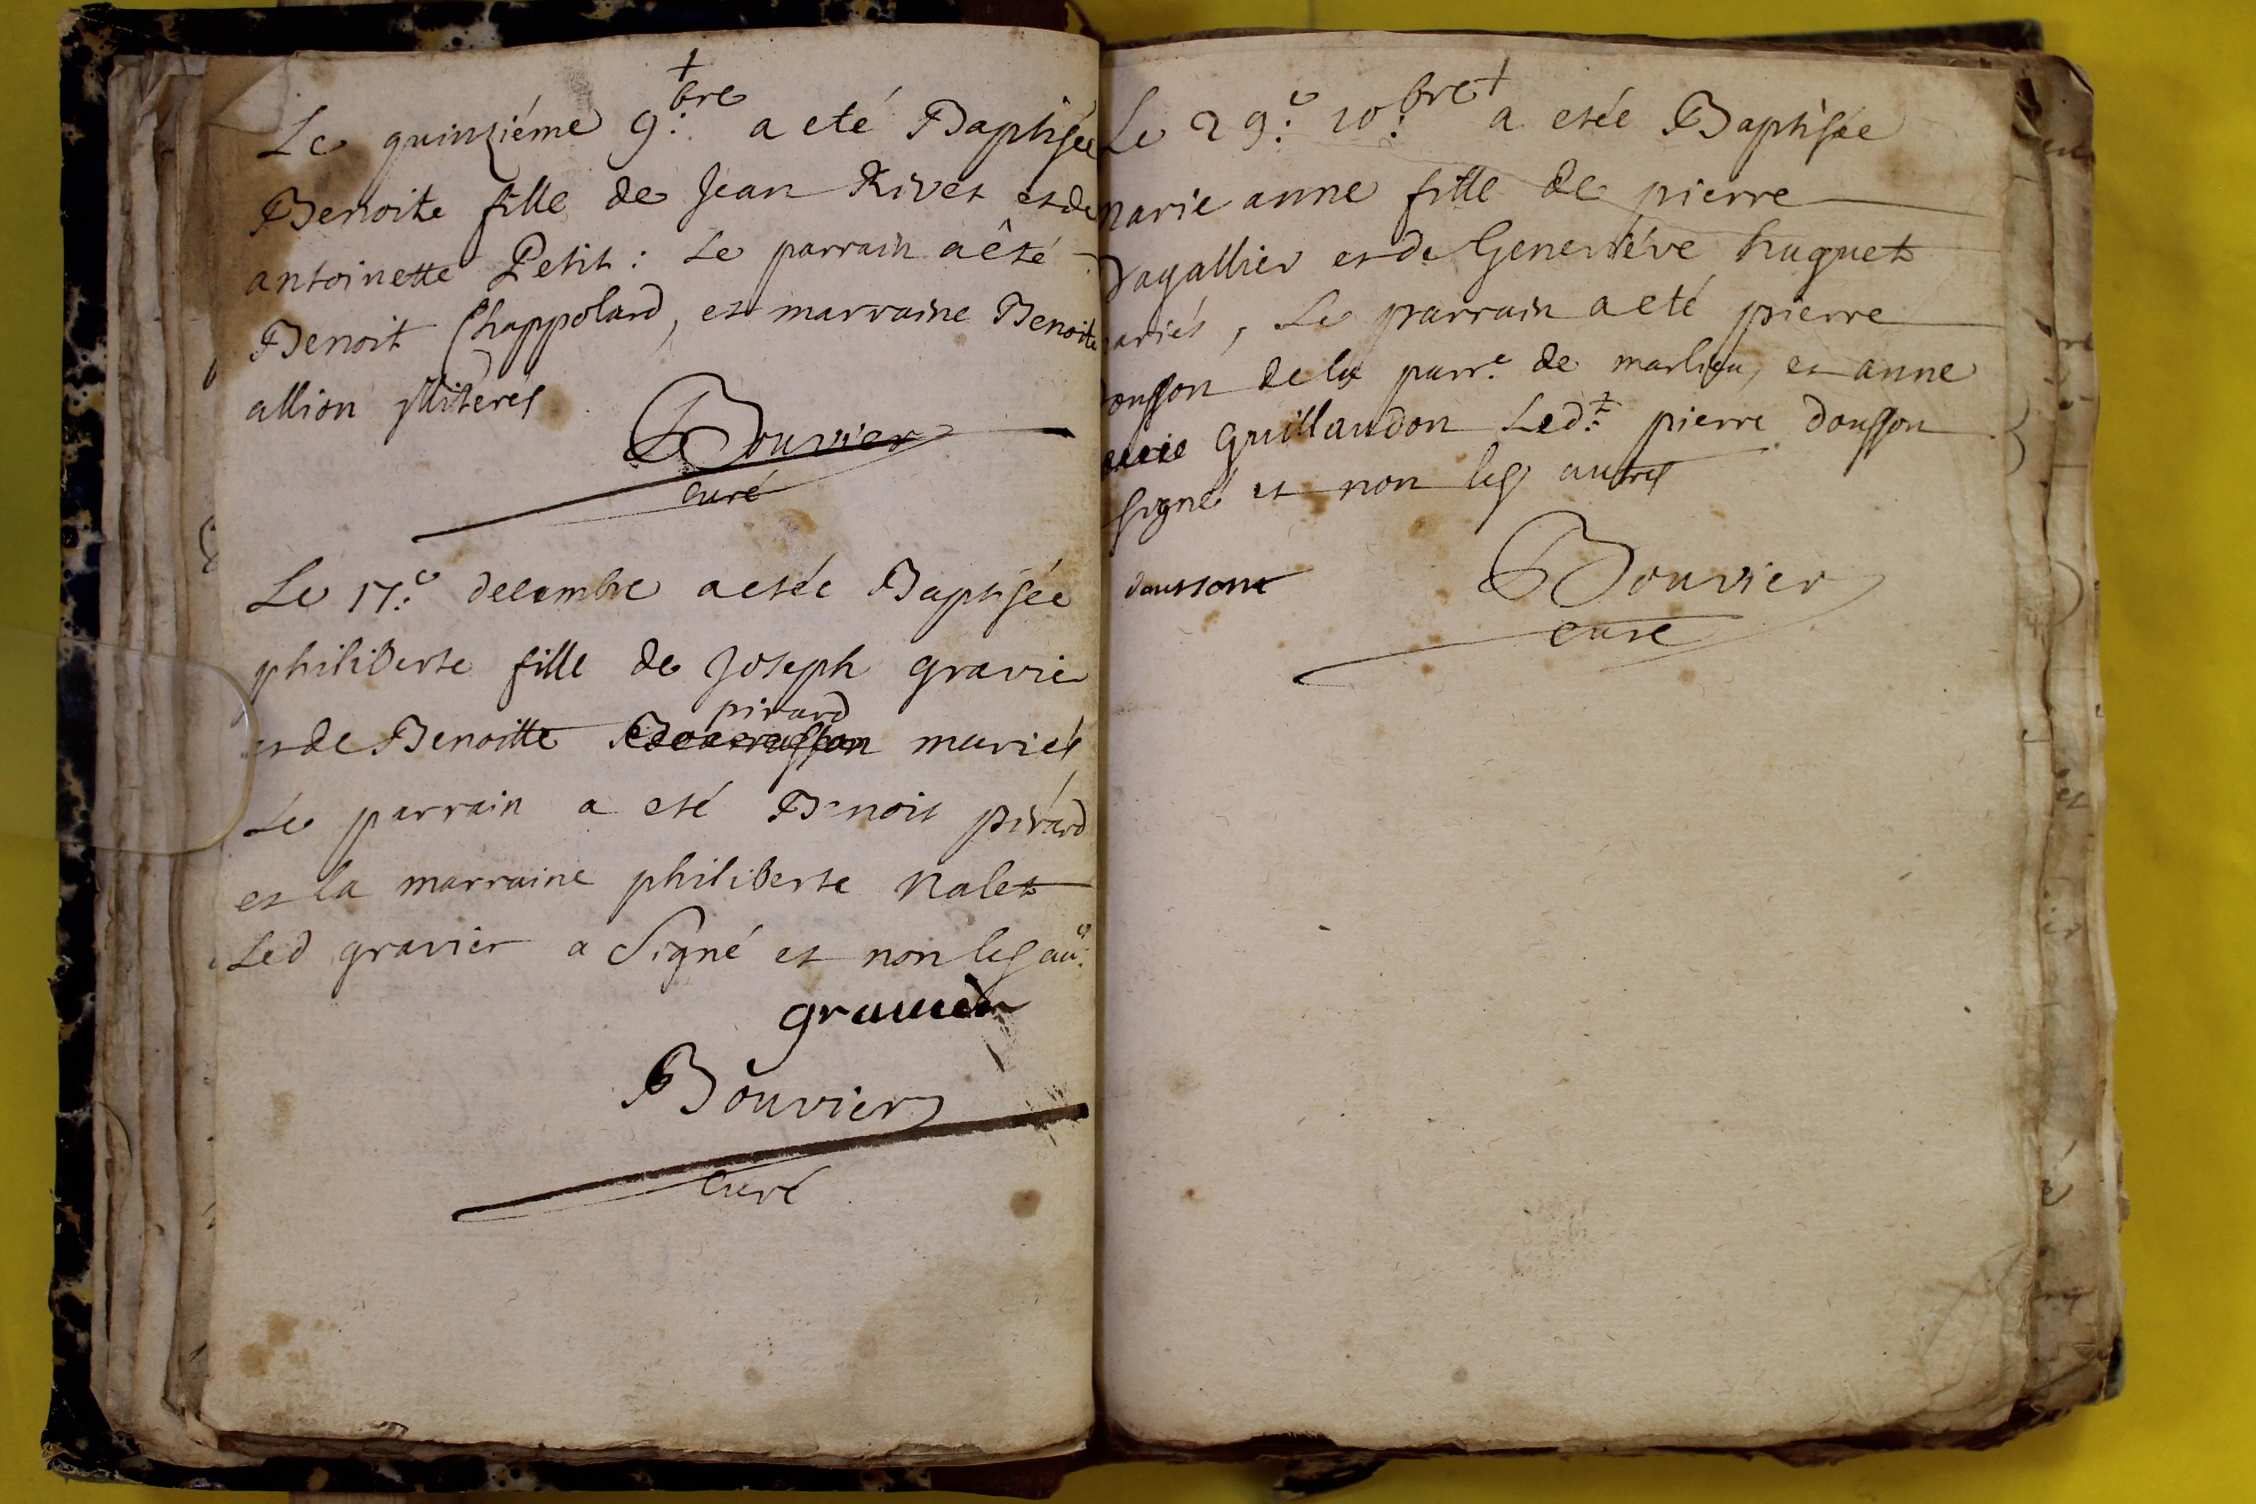 Le quinziéme 9:bre a eté Baptisée
Benoite fille de Jean Rivet et de
antoinette Petit : Le parrain a êté
Benoit Chappolard, et marraine Benoite
allion illiterés
Bouvier
curé
Le 17:e decembre a etée Baptisée
philiberte fille de Joseph gravier
pirard
et de Benoitte mariés
Le parrain a eté Benoit pirard
et la marraine philiberte Nalet
Led gravier a Signé et non les au:
gravier
Bouvier
curé
Le 29:e 10:bre a etée Baptisée
marie anne fille de pierre
Dagallier et de Geneviéve huguet
mariés, Le parrain a eté pierre
dousson de la parr.e de marlieu, et anne
marie Guillaudon Led:t pierre dousson
signé et non les autres
doussont
Bouvier
curé